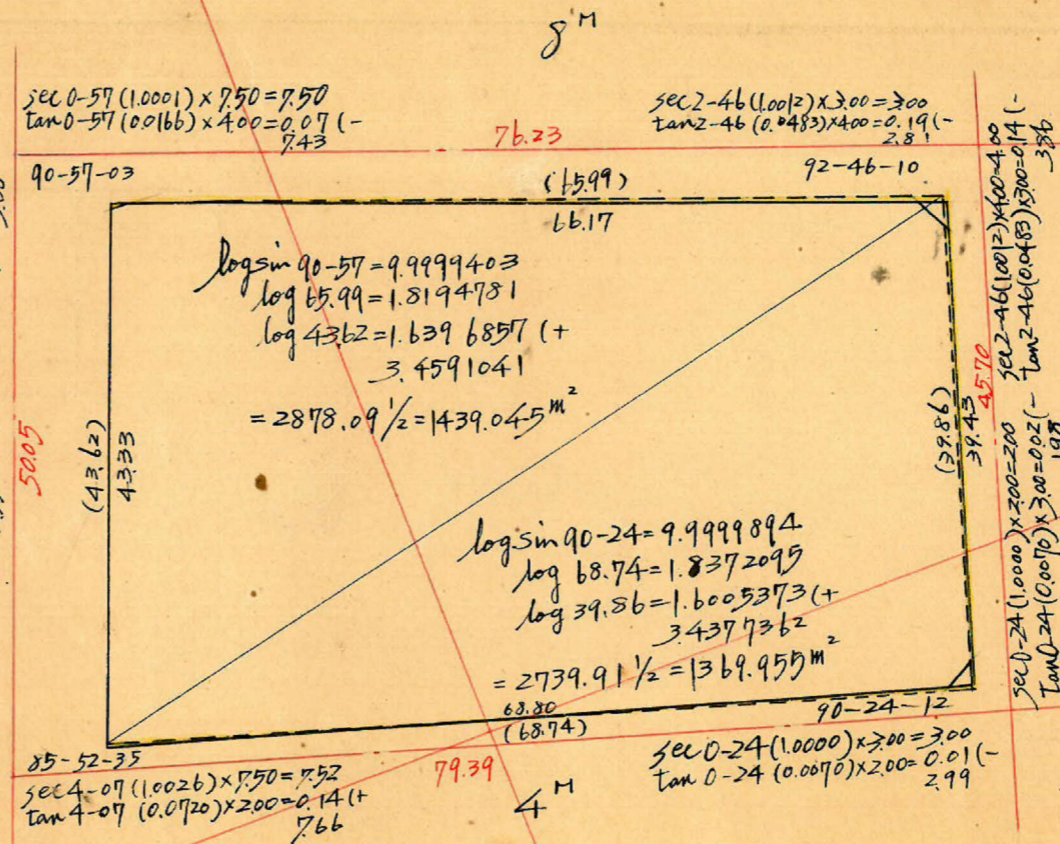 8ᴹ
sec 0-57 (1.0001) x 7.50 = 7.50
tan 0-57 (0.0166) x 4.00 = 0.07 (-
7.43
sec 2-46 (1.0012) x 3.00 = 3.00
tan 2-46 (0.0483) x 4.00 = 0.19 (-
2.81
76.23
90-57-03
92-46-10
(65.99)
66.17
logsin 90-57 = 9.9999403
log 65.99 = 1.8194781
log 43.62 = 1.639 6857 (+
3.4591041
= 2878.09 1/2 = 1439.045 m²
50.05
(43.62)
43.33
(39.86)
39.43
45.70
sec 2-46 (1.0012) x 4.00 = 4.00
tan 2-46 (0.0483) x 3.00 = 0.14 (-
3.86
sec 0-24 (1.0000) x 2.00 = 2.00
tan 0-24 (0.0070) x 3.00 = 0.02 (-
1.98
logsin 90-24 = 9.9999894
log 68.74 = 1.8372095
log 39.86 = 1.6005373 (+
3.4377362
= 2739.91 1/2 = 1369.955 m²
68.80
(68.74)
90-24-12
85-52-35
79.39
sec 4-07 (1.0026) x 7.50 = 7.52
tan 4-07 (0.0720) x 2.00 = 0.14 (+
7.66
4ᴹ
sec 0-24 (1.0000) x 3.00 = 3.00
tan 0-24 (0.0070) x 2.00 = 0.01 (-
2.99